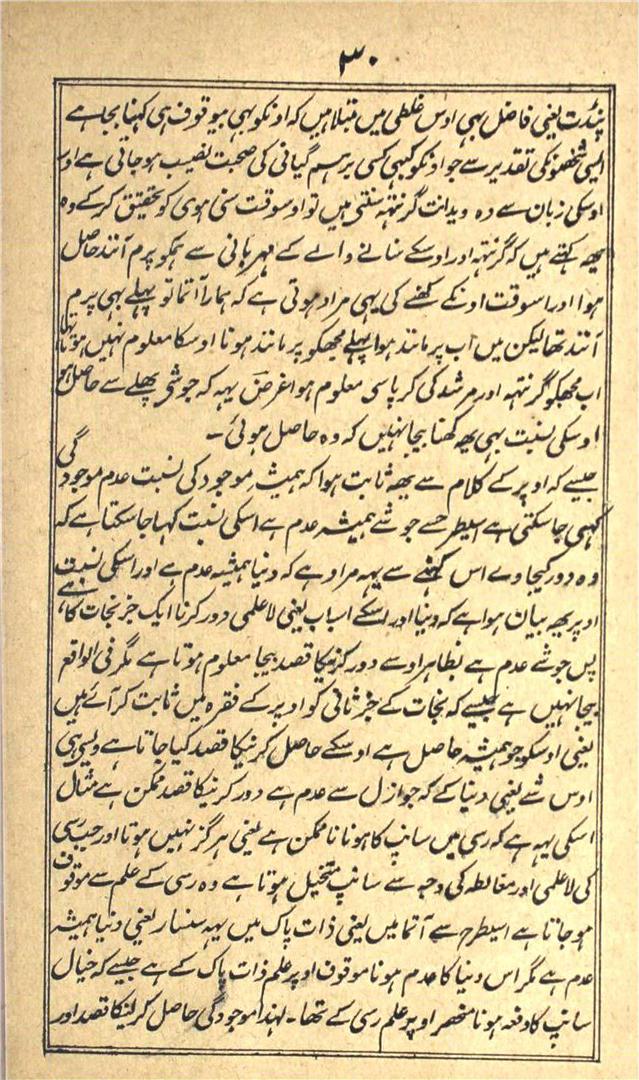 ۳۰
پنڈت یعنی فاضل بہی اوس غلطی میں مبتلا ہیں کہ اونکو بہی بیوقوف ہی کہنا بجا ہے
ایسی شخصونکی تقدیر سے جو اونکو کبہی کسی برہم گیانی کی صحبت نصیب ہو جاتی ہے اور
اوسکی زبان سے وہ ویدانت گرنتہہ سنتی ہیں تو اوسوقت سنی ہوی کو تحقیق کر کے وہ
یہہ کہتے ہیں کہ گرنتہہ اور اوسکے سنانے والے کے مہربانی سے ہمکو پرم آنند حاصل
ہوا اور اسوقت اونکے کہنے کی یہی مراد ہوتی ہے کہ ہمارا آتما تو پہلے بہی پرم
آنند تھا لیکن میں اب پرمانند ہوا پہلے مجھکو پرمانند ہونا اوسکا معلوم نہیں ہوتا تہا
اب مجھکو گرنتہہ اور مرشد کی کرپا سی معلوم ہوا غرض یہہ کہ جو شی پھلے سے حاصل ہو
اوسکی نسبت بہی یہہ کھنا بیجا نہیں کہ وہ حاصل ہوئی ۔
جیسے کہ اوپر کے کلام سے یھہ ثابت ہوا کہ ہمیشہ موجود کی نسبت عدم موجودگی
کہی جا سکتی ہے اسیطرحسے جو شے ہمیشہ عدم ہے اسکی نسبت کہا جا سکتا ہے کہ
وہ دور کیجاوے اس کہنے سے یہہ مراد ہے کہ دنیا ہمیشہ عدم ہے اور اسکی نسبت
اوپر یھہ بیان ہوا ہے کہ دنیا اور اسکے اسباب یعنی لاعلمی دور کرنا ایک جز نجات کا ہے،
پس جو شے عدم ہے بظاہر اوسے دور کرنیکا قصد بیجا معلوم ہوتا ہے مگر فی الواقع
بیجا نہیں ہے جیسے کہ نجات کے جز ثانی کو اوپر کے فقرہ میں ثابت کر آئے ہیں
یعنی اوسکو جو ہمیشہ حاصل ہے اوسکے حاصل کرنیکا قصد کیا جاتا ہے ویسی ہی
اوس شے یعنی دنیا کے کہ جو ازل سے عدم ہے دور کرنیکا قصد ممکن ہے مثال
اسکی یہہ ہے کہ رسی میں سانپ کا ہونا ناممکن ہے یعنی ہرگز نہیں ہوتا اور جب رسی
کی لاعلمی اور مغالطہ کی وجہ سے سانپ متخیل ہوتا ہے وہ رسی کے علم سے موقوف
ہو جاتا ہے اسیطرح سے آتما میں یعنی ذات پاک میں یہہ سنسار یعنی دنیا ہمیشہ
عدم ہے مگر اس دنیا کا عدم ہونا موقوف اوپر علم ذات پاک کے ہے جیسے کہ خیال
سانپ کا دفعہ ہونا منحصر اوپر علم رسی کے تھا ۔ لہذا موجودگی حاصل کرنیکا قصد اور